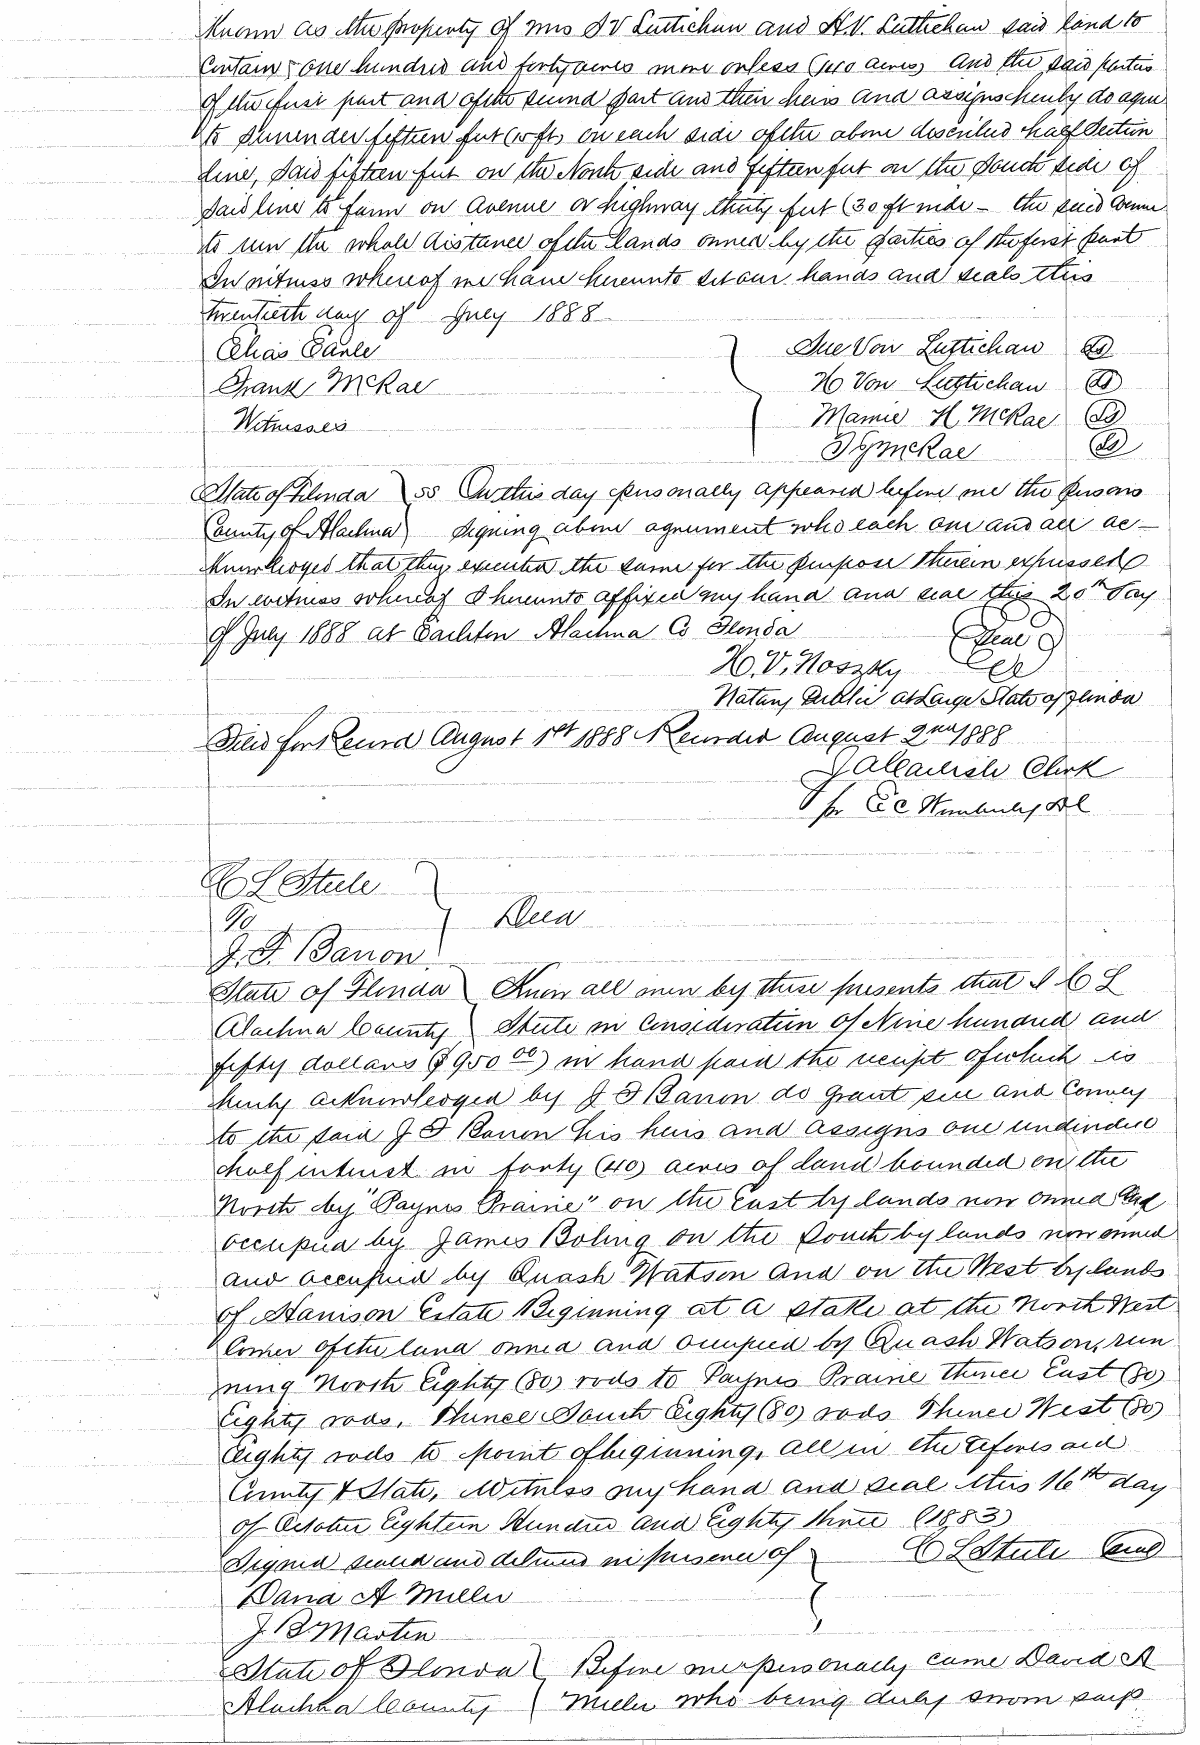 Known as the property of Mrs S V Luttichau and H.V. Luttichau said land to
Contain one hundred and forty acres more or less (140 acres) and the said parties
of the first part and of the second part and their heirs and assigns hereby do agree
to surrender fifteen feet (15 ft) on each side of the above described half Section
line, said fifteen feet on the North side and fifteen feet on the South side of
said line to form on Avenue or highway thirty feet (30 ft wide - the said Avenue
to run the whole distance of the lands owned by the parties of the first part
In witness whereof we have hereunto set our hands and seals this
twentieth day of July 1888
Elias Earle Sue Von Luttichau LS
Frank McRae H Von Luttichau LS
Witnesses Mamie H McRae LS
McRae LS
State of Florida ss On this day personally appeared before me the persons
County of Alachua Signing above agreement who each one and all ac-
knowledged that they executed the same for the purpose therein expressed
In witness whereof I hereunto affixed my hand and seal this 20th Day
of July 1888 at Alachua Co Florida
Seal
H. V. Noszky
Notary Public at Large State of Florida
Filed for Record August 1st 1888 Recorded August 2nd 1888
Clerk
pr DC
C L Steele
To Deed
J. F. Barron
State of Florida Know all men by these presents that I C L
Alachua County Steele in Consideration of Nine hundred and
fifty dollars ($950 00) in hand paid the receipt of which is
hereby acknowledged by J F Barron do grant sell and Convey
to the said J F Barron his heirs and assigns one undivided
half interest in forty (40) acres of land bounded on the
North by "Paynes Prairie" on the East by lands now owned and
occupied by James Boling on the South by lands now owned
and occupied by Quash Watson and on the West by lands
of Harrison Estate Beginning at a stake at the North West
Corner of the land owned and occupied by Quash Watson, run
ning North Eighty (80) rods to Paynes Prairie thence East (80)
Eighty rods, Thence South Eighty (80) rods Thence West (80)
Eighty rods to point of beginning, all in the aforesaid
County & State, Witness my hand and seal this 16th day
of October Eighteen Hundred and Eighty three (1883)
Signed sealed and delivered in presence of C L Steele Seal
David A Miller
J B Martin
State of Florida Before me personally came David A
Alachua County Miller who being duly sworn says